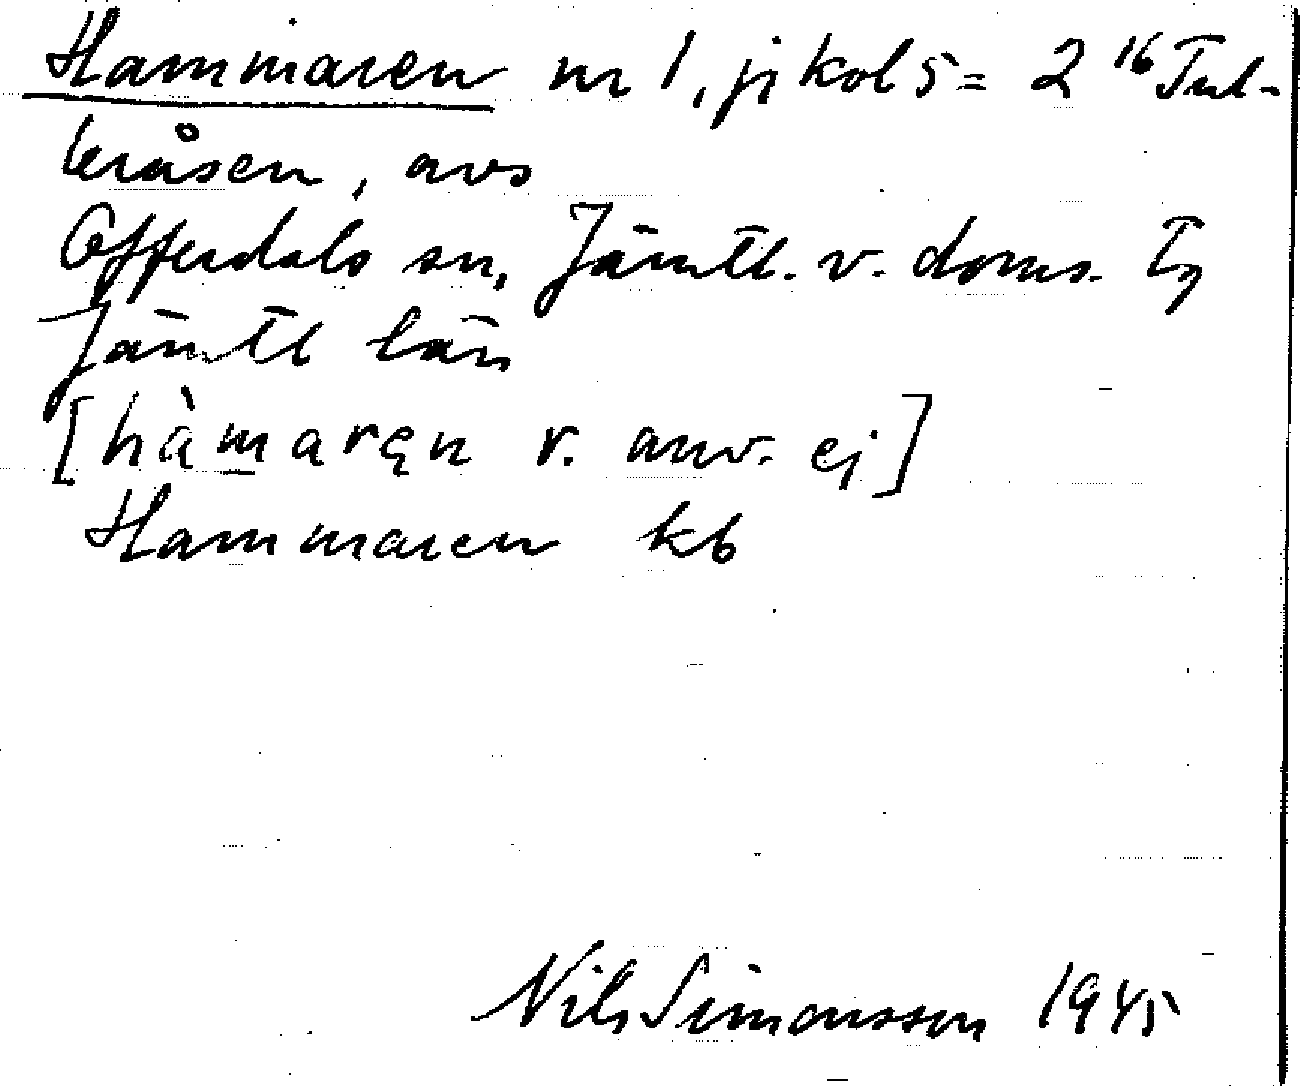 Hammaren nr 1, ji kol 5 = 2 16 Tul-
leråsen, avs
Offerdals sn, Jämtl. v. doms. Tg
Jämtl län
[hàmaręn v. anv. ej]
Hammaren kb
Nils Simonsson 1945